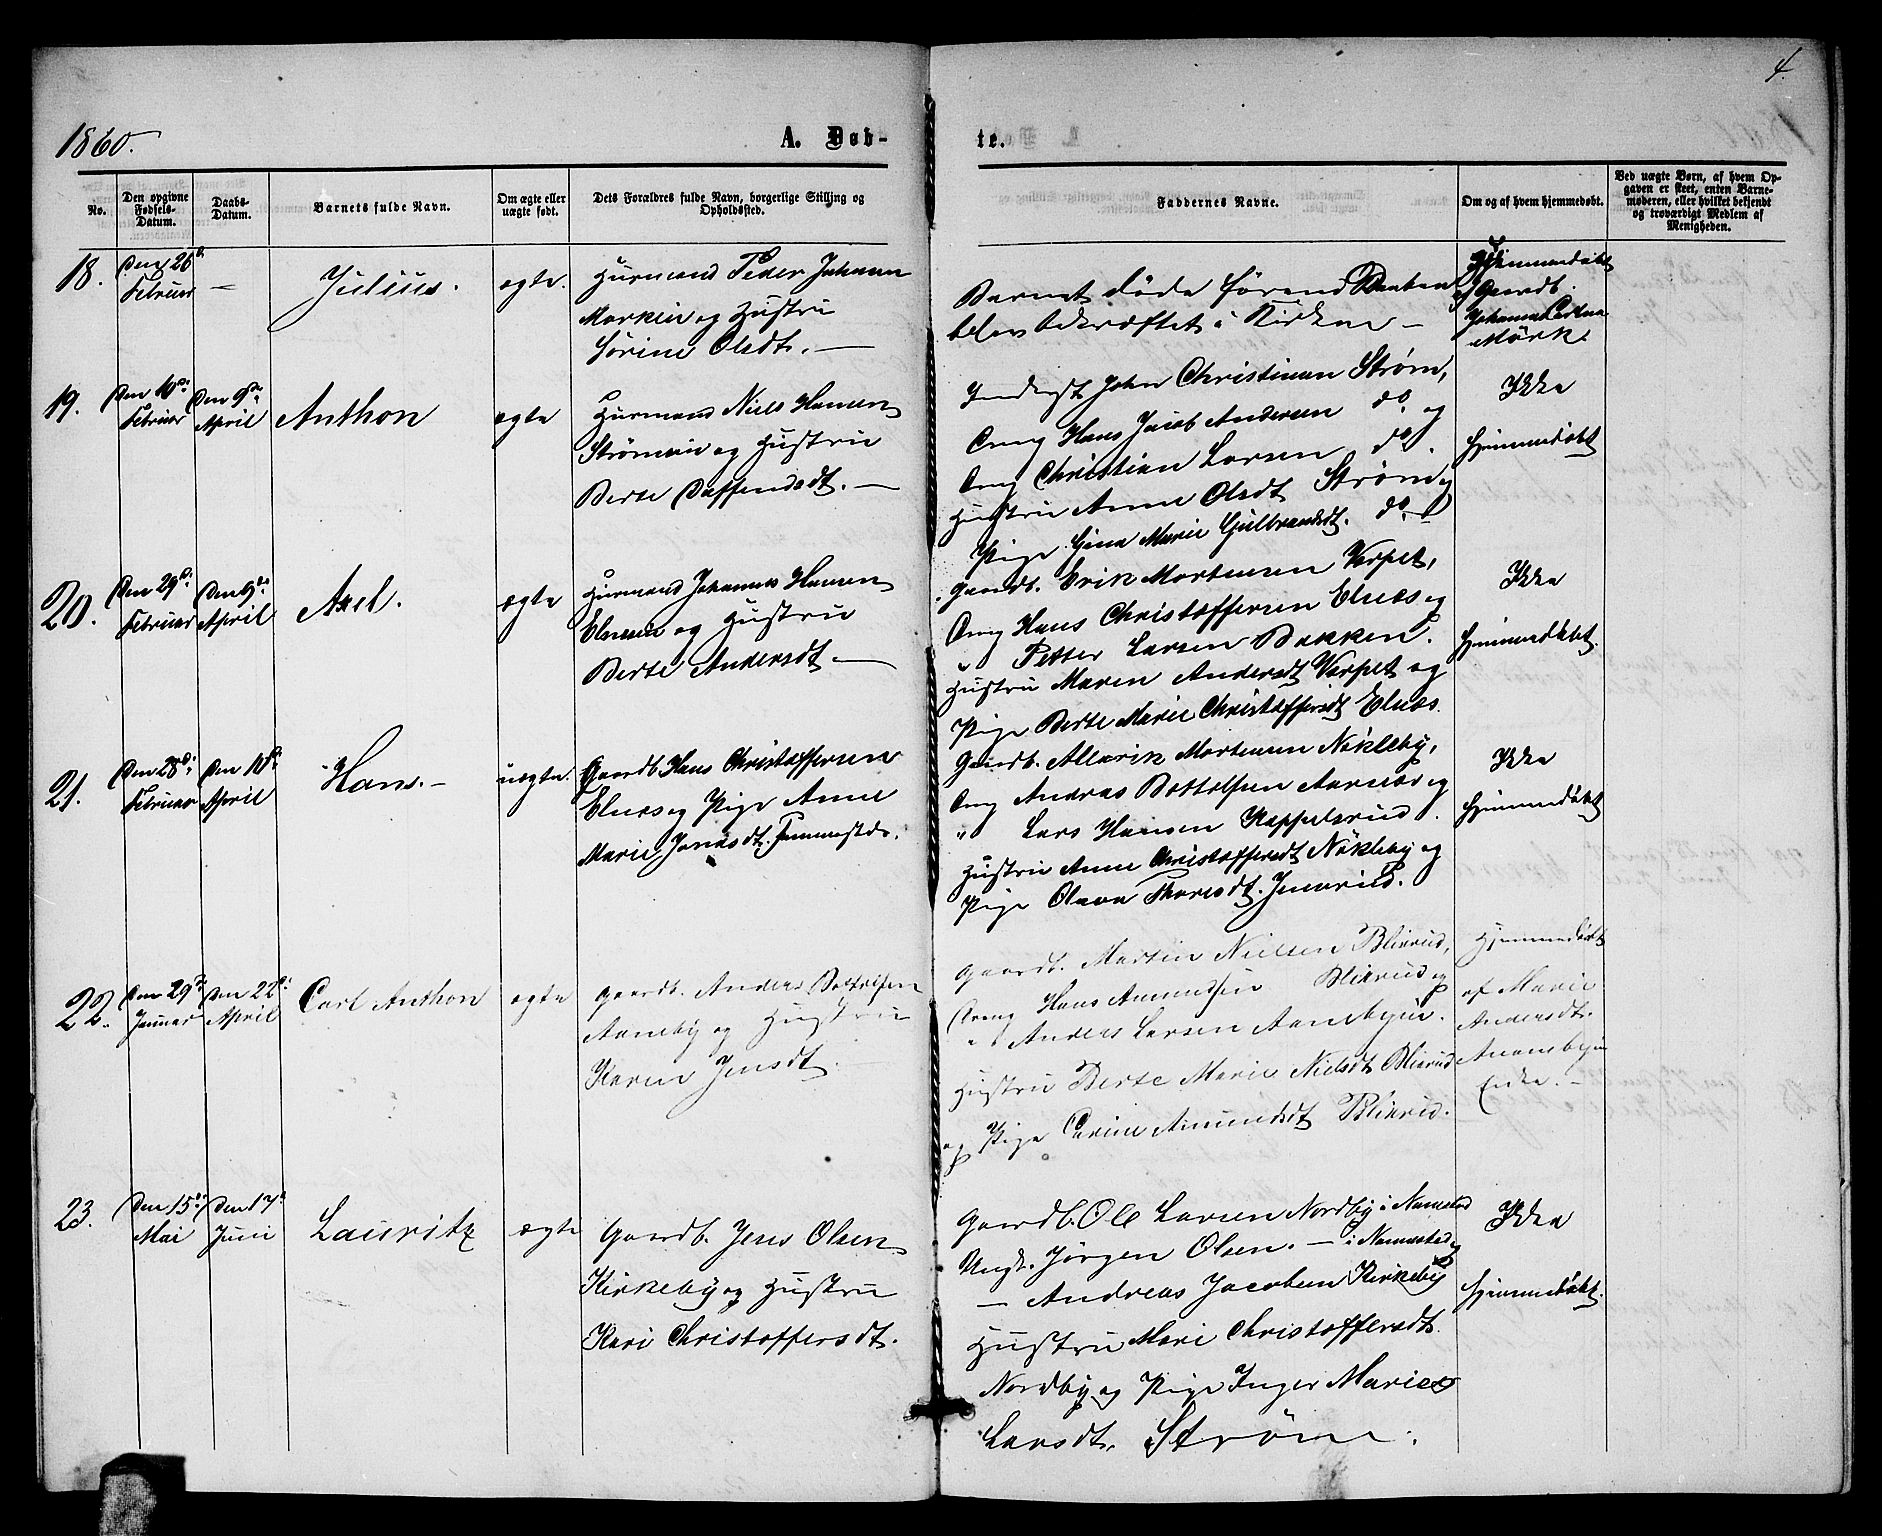 4.
1860.
A. Døb-
te.
No.
Den opgivne
Fødsels-
Datum.
Daabs-
Datum.
Barnets fulde Navn.
Om ægte eller
uægte født.
Dets Forældres fulde Navn, borgerlige Stilling og
Opholdssted.
Faddernes Navne.
Om og af hvem hjemmedøbt.
Ved uægte Børn, af hvem Op-
gaven er skeet, enten Barne-
moderen, eller hvilket bekjendt
og troværdigt Medlem af
Menigheden.
18.
Den 26
Februar
—
Julius.
ægte.
Huusmand Peder Johann
og Hustru
Sørine Olsdt. —
Barnet døde førend Daaben
blev bekræftet i Kirken —
Hjemmedøbt
af Gaardb.
Mørk.
19.
Den 10de
Februar
Den 9de
April
Anthon
ægte
Huusmand Niels Hansen
Strømeie og Hustru
Berte Staffensdt. —
John Christiansen Strøm,
Ung Hans Jacob Andersen do og
Ung Christian Larsen do.
Hustru Anne Olsdt Strøm og
Pige Gina Marie Gulbrandsdt. do. —
Ikke
hjemmedøbt
20.
Den 29de
Februar
Den 9de
April
Axel.
ægte
Huusmand Johannes Hansen
og Hustru
Berte Andersdt —
Gaardb. Erik Mortensen Verpet,
Ung Hans Christoffersen Elnæs og
" Petter Larsen Bakken.
Hustru Maren Andersdt Verpet og
Pige Berte Marie Christoffersdt Elnæs.
Ikke
hjemmedøbt.
21.
Den 28de
Februar
Den 10de
April
Hans. —
uægte.
Gaardb. Hans Christoffersen
Elnæs og Pige Anne
Marie Jonasdt.
Gaardb. Allerik Mortensen Nøkleby,
Ung Andreas Bottolfsen Aarnæs og
" Lars Hansen Kappelsrud.
Hustru Anne Christoffersdt Nøkleby og
Pige Olava Thoresdt.
Ikke
hjemmedøbt
22.
Den 29de
Januar
Den 22de
April
Carl Anthon
ægte
Gaardb. Anders Bottolfsen
Aaneby og Hustru
Karen Jensdt.
Gaardb. Martin Nielsen Blixrud,
Ung Hans Amundsen Blixrud og
" Anders Larsen Aanebyeie.
Hustru Berte Marie Nielsdt Blixrud
og Pige Carine Amundsdt Blixrud.
Hjemmedøbt
af Marie
Andersdt.
Enke. —
23.
Den 15de
Mai
Den 17de
Juni
Lauritz
ægte
Gaardb. Jens Olsen
Kirkeby og Hustru
Kari Christoffersdt.
Gaardb. Ole Larsen Nordby i Nannestad
Ungk. Jørgen Olsen. — i Nannestad og
— Andreas Jacobsen Kirkeby
Hustru Mari Christoffersdt.
Nordby og Pige Inger Marie
Larsdt. Strøm.
Ikke
hjemmedøbt.